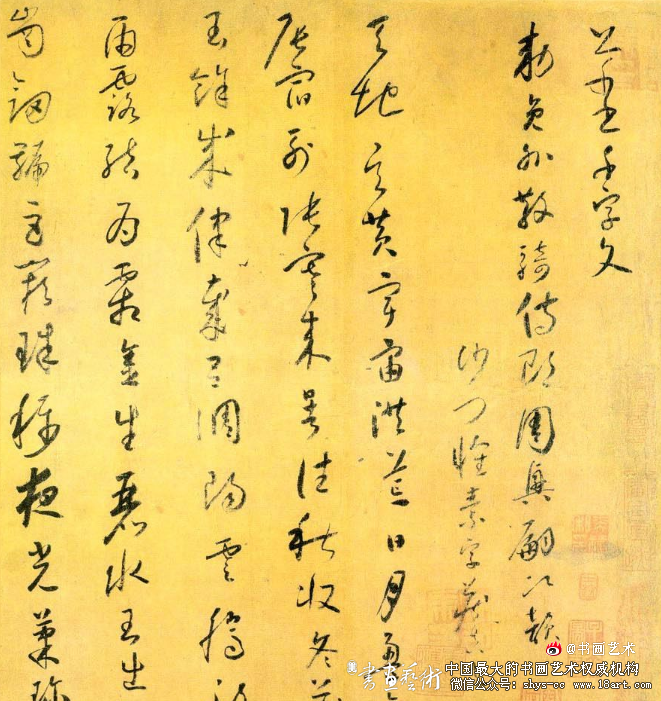 千字文
敕員外散騎侍郎周興嗣次韻
沙門懷素字藏真
天地玄黃宇宙洪荒日月盈
辰宿列張寒來暑往秋收冬藏
閏餘成律歲呂調陽雲騰致
雨露結為霜金生麗水玉出
崗劍號巨闕珠稱夜光菓珍
@书画艺术
書畫藝術
中国最大的书画艺术权威机构
微信公众号：shys-cc www.18art.com